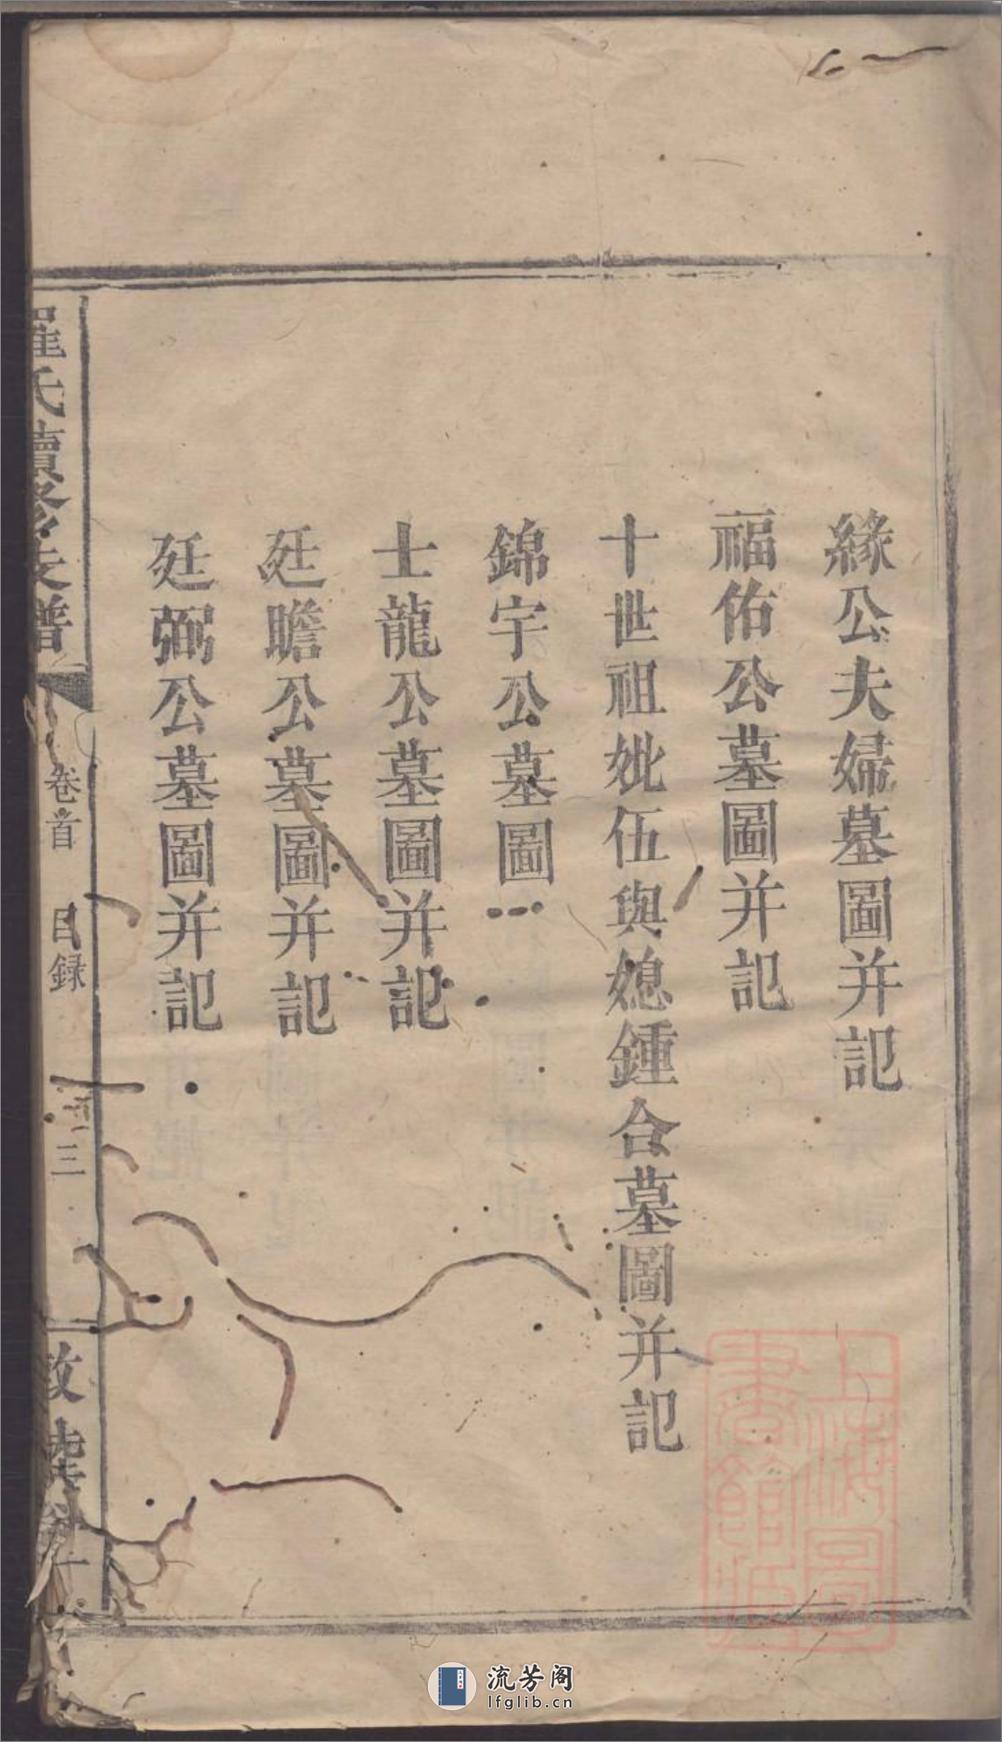 緣公夫婦墓圖并記
福佑公墓圖并記
十世祖妣伍與媳鍾合墓圖并記
錦宇公墓圖
士龍公墓圖并記
廷瞻公墓圖并記
廷弼公墓圖并記
羅氏續修支譜
卷首 目録
三
敦睦
上海圖書館藏
流芳阁
lfglib.cn